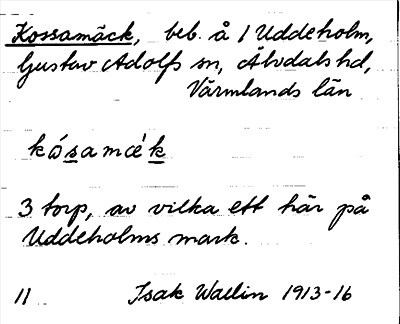 Kossamäck, beb. å 1 Uddeholm,
Gustav Adolfs sn, Älvdals hd,
Värmlands län
kɷ́samæ̀k
3 torp, av vilka ett här på
Uddeholms mark.
11 Isak Wallin 1913-16